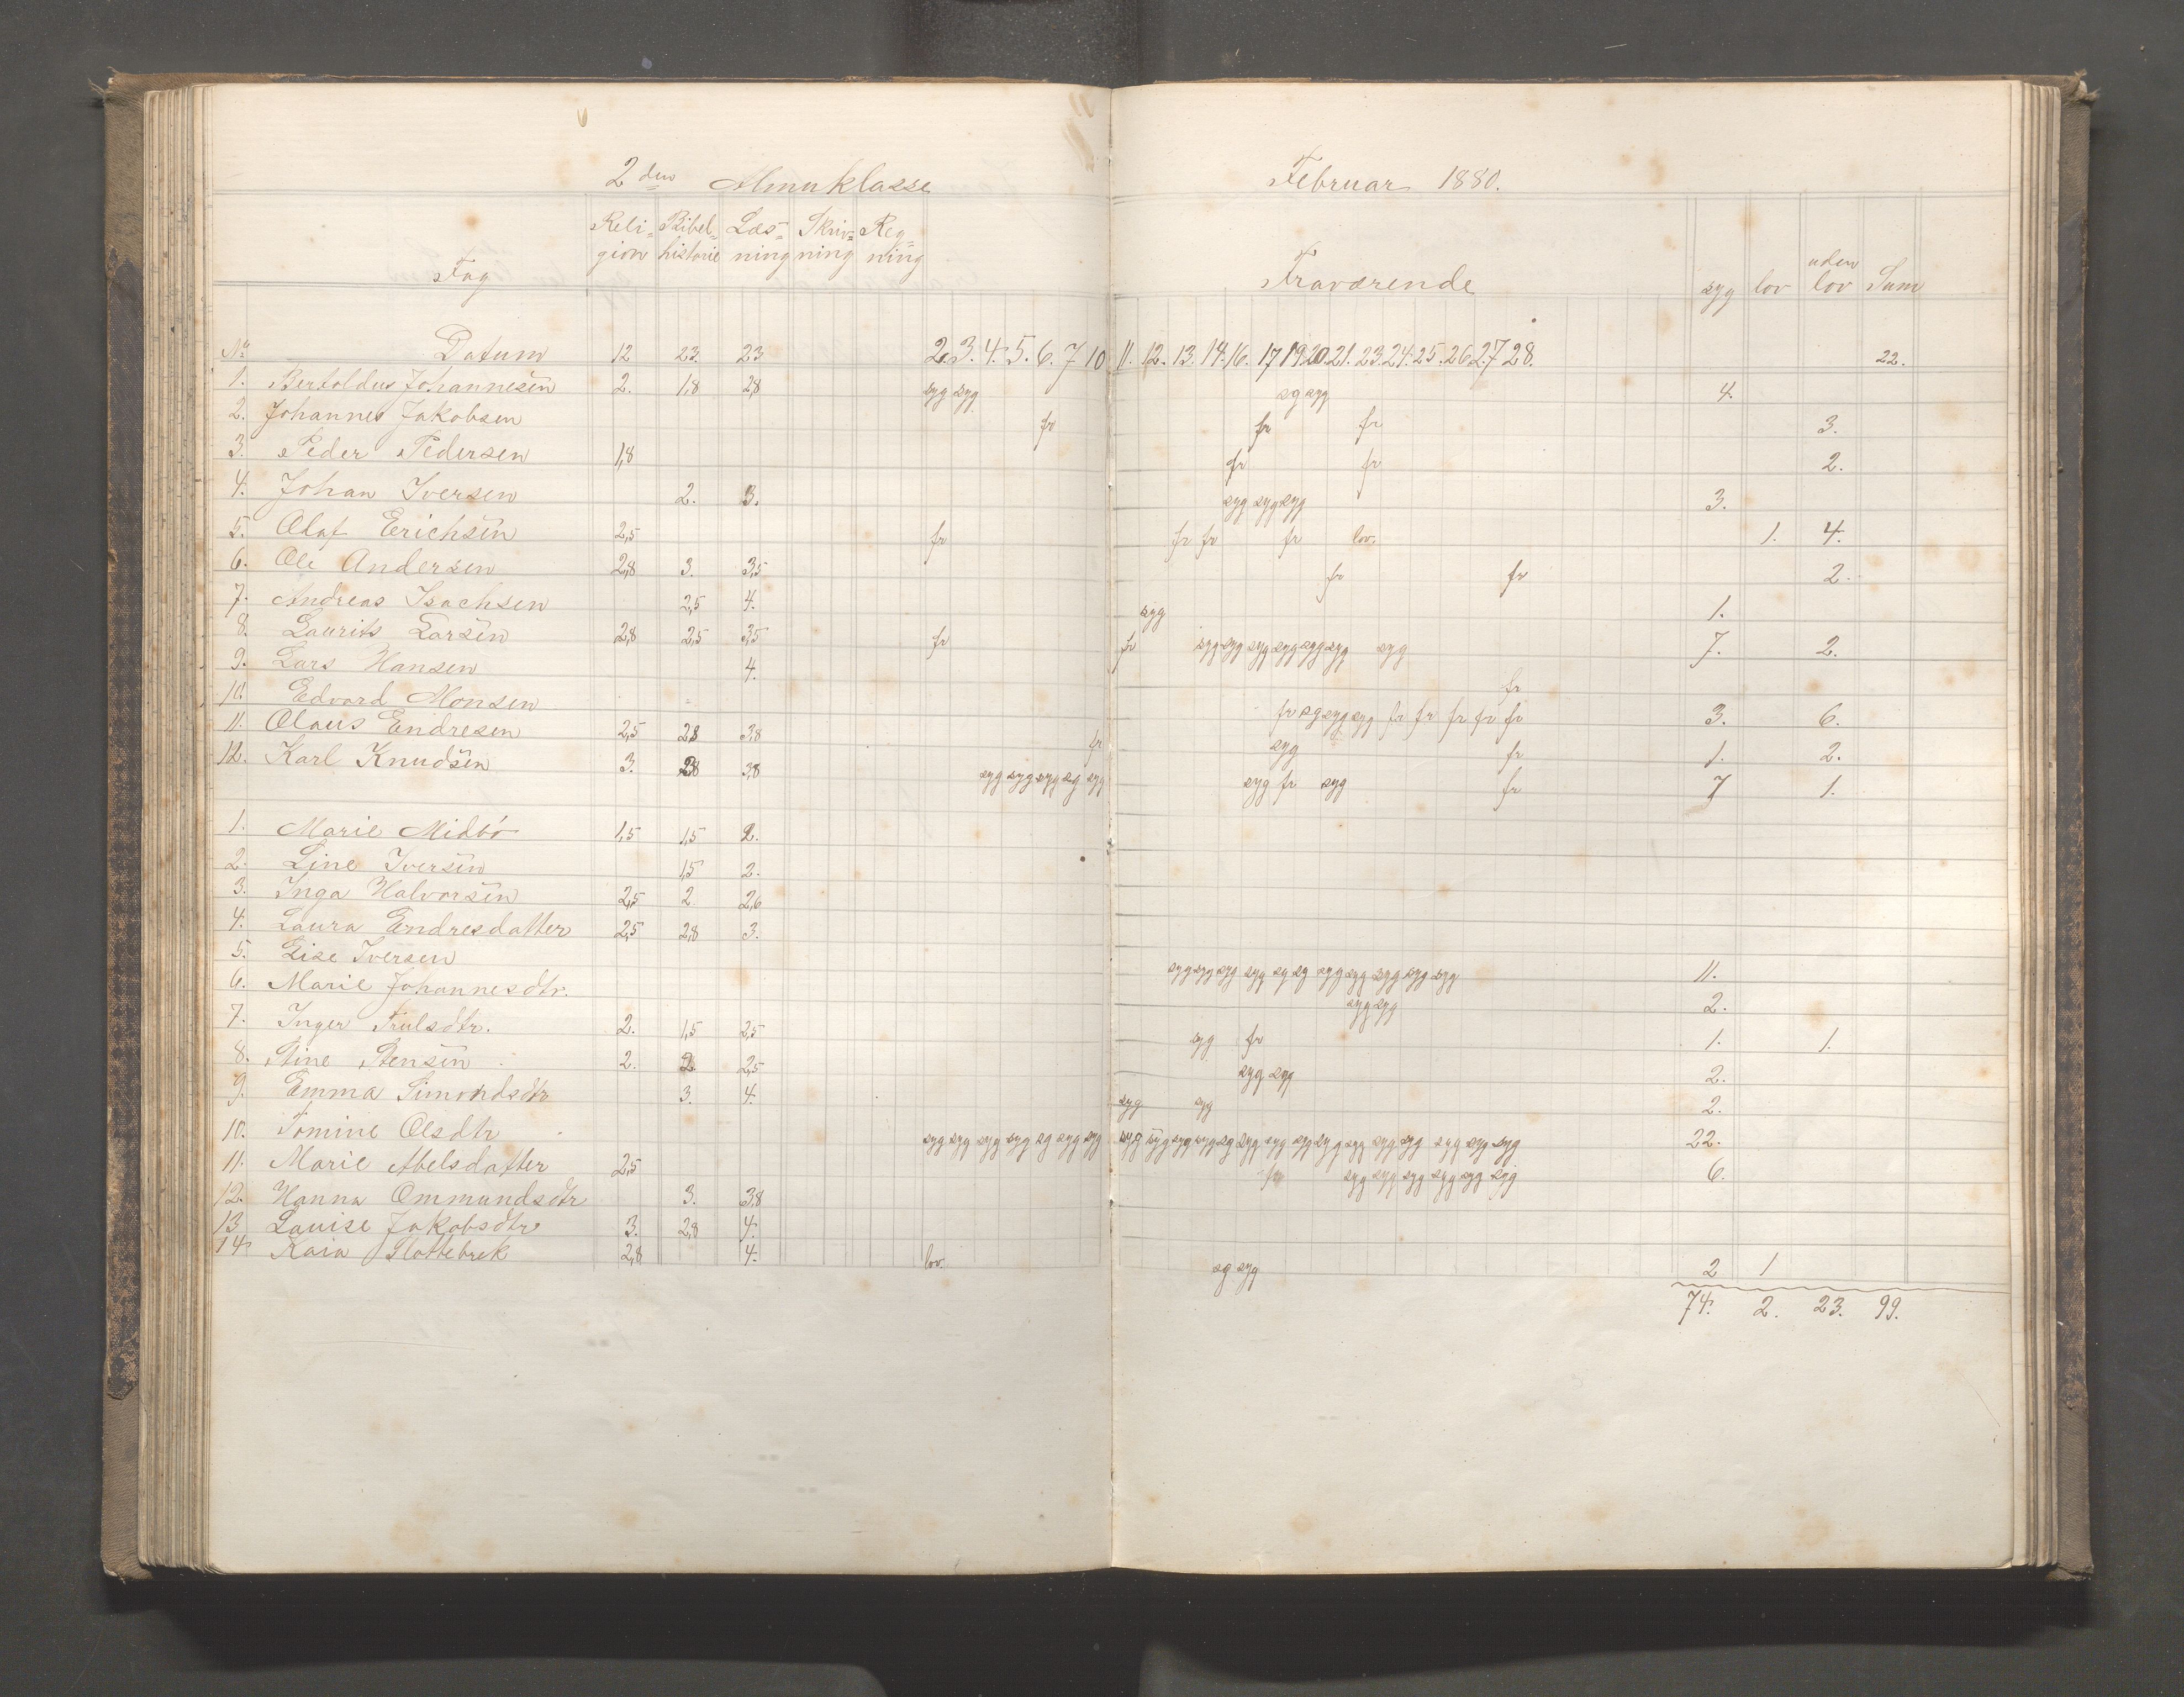 2den Almuklasse Februar 1880.
Reli= Bibel= Læs= Skriv= Reg=
gion historie ning ning ning
Fag Fraværende syg lov uden lov Sum
No Datum 12 23. 23 2. 3. 4. 5. 6. 7 10 11. 12. 13. 14. 16. 17 19. 20. 21. 23. 24. 25. 26. 27 28. 22.
1. Bertoldus Johannesen 2. 1,8 2,8 syg syg sg syg 4.
2. Johannes Jakobsen fr fr fr 3.
3. Peder Pedersen 1,8 fr fr 2.
4. Johan Iversen 2. 3. syg syg syg 3.
5. Olaf Erichsen 2,5 fr fr fr fr lov. 1. 4.
6. Ole Andersen 2,8 3. 3,5 fr fr 2.
7. Andreas Isachsen 2,5 4. syg 1.
8. Laurits Larsen 2,8 2,5 3,5 fr fr syg syg syg syg syg syg syg 7. 2.
9. Lars Hansen 4. fr
10. Edvard Monsen fr sg syg syg fr fr fr fr fr 3. 6.
11. Olaus Endresen 2,5 2,8 3,8 fr syg fr 1. 2.
12. Karl Knudsen 3. 2,8 3,8 syg syg syg sg syg syg fr syg fr 7 1.
1. Marie Midbö 1,5 1,5 2.
2. Line Iversen 1,5 2.
3. Inga Halvorsen 2,5 2 2,6
4. Laura Endresdatter 2,5 2,8 3.
5. Lise Iversen syg syg syg syg sg sg syg syg syg syg syg 11.
6. Marie Johannesdtr. syg syg 2.
7. Inger Trulsdtr. 2. 1,5 2,5 syg fr 1. 1.
8. Stine Stensen 2. 2. 2,5 syg syg 2.
9. Emma Simondsdtr 3. 4. syg syg 2.
10. Tomine Olsdtr syg syg syg syg sg syg syg syg syg syg syg sg syg syg syg syg syg syg syg syg syg syg 22.
11. Marie Abelsdatter 2,5 fr syg syg syg syg syg syg 6.
12. Hanna Ommundsdtr 3. 3,8
13 Louise Jakobsdtr 3. 2,8 4.
14 Kaia Slottebrek 2,8 4. lov. sg syg 2 1
74. 2. 23. 99.